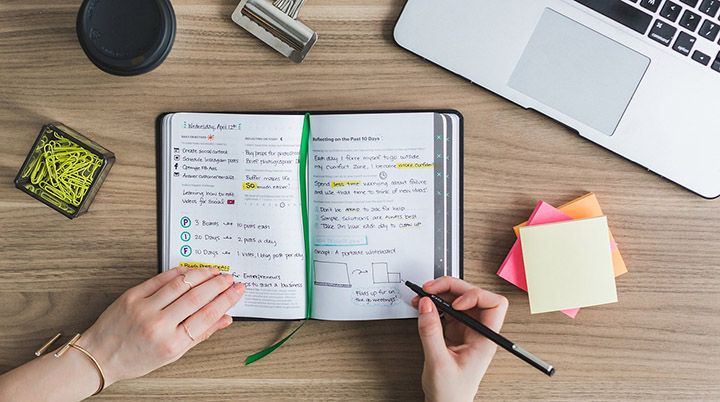 Wednesday, April 12th
DAILY OBJECTIVES
Create social content
Schedule Instagram posts
Optimize FB Ads
Answer customer emails
Learning how to edit
Videos for Social
P 3 Boards 10 posts each
I 20 Days 2 posts a day
F 10 Days 1 vid, 1 blog post per day
Blog Post Ideas
for Entrepreneurs
to start a business
Buy props for photoshoot
Brief photographer
Buffer makes life
SO much easier
Reflecting on the Past 10 Days
Each day I force myself to go outside
my comfort zone, I become more confident
Spend less time worrying about failure
and use that time to think of new ideas!
Don't be AFRAID to ask for help
Simple Solutions are always best
Take an hour each day to CLEAN UP
Concept: A portable whiteboard
Folds up for on
the go meetings!
control
option
command
command
option